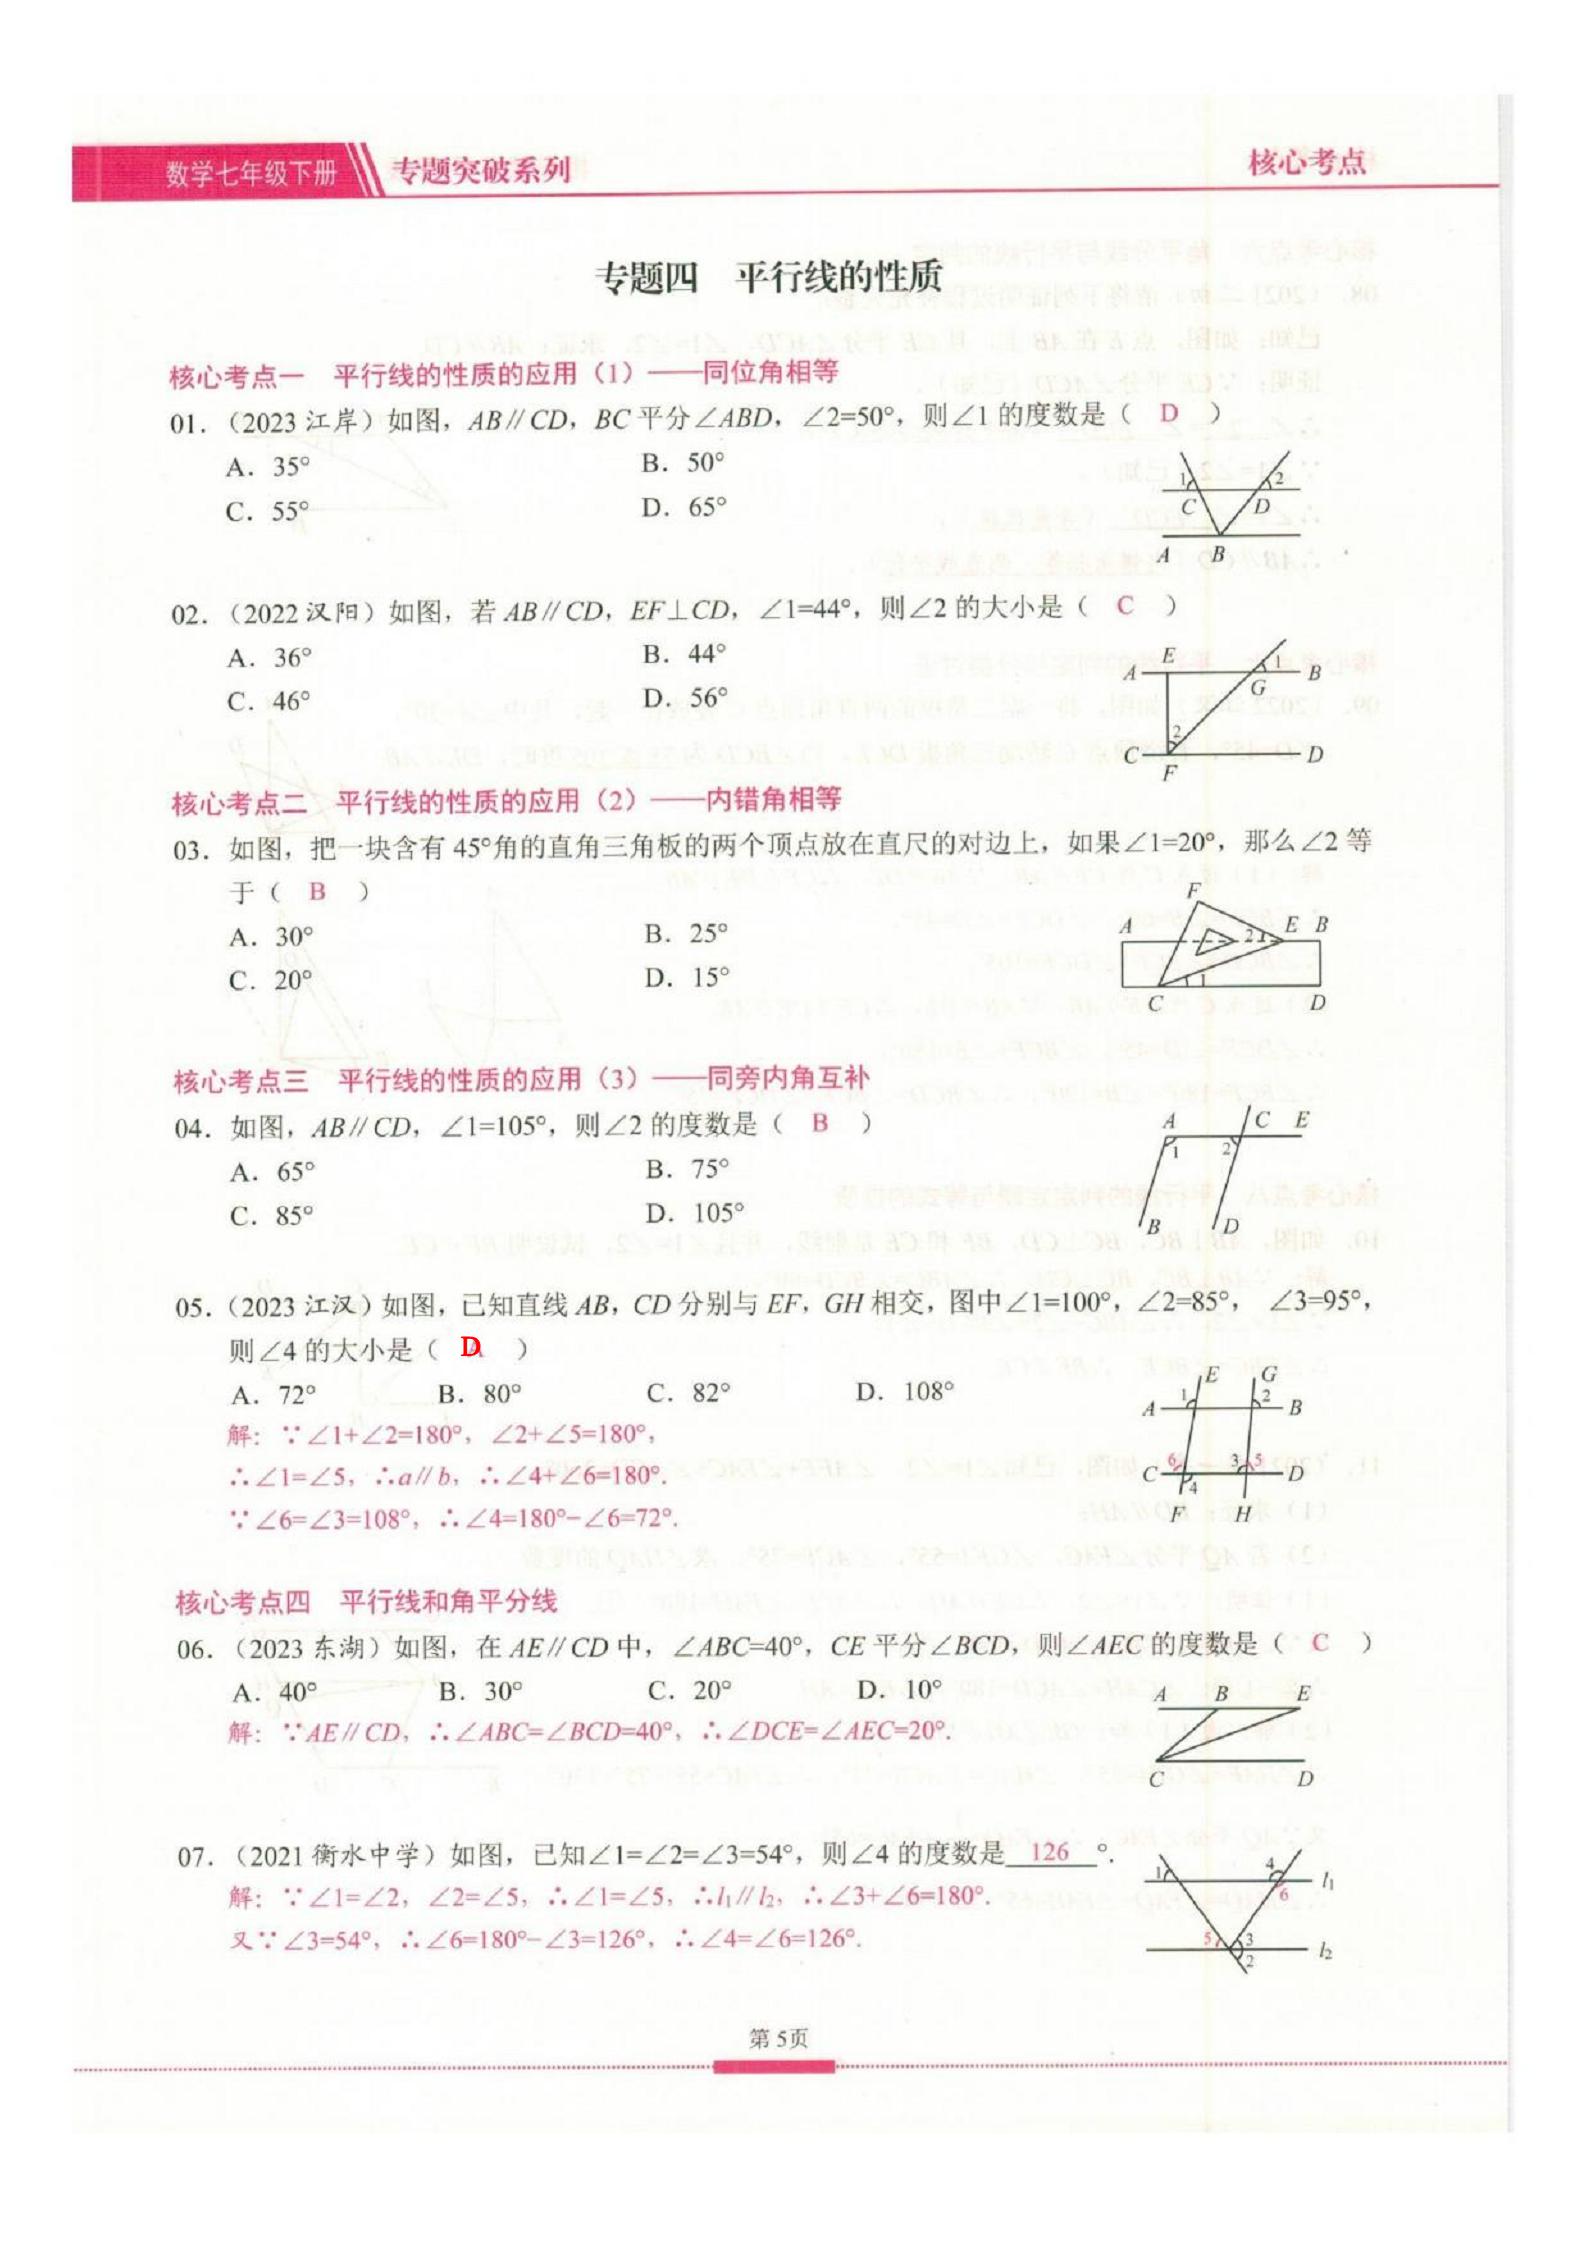 数学七年级下册 专题突破系列 核心考点
专题四 平行线的性质
核心考点一 平行线的性质的应用（1）——同位角相等
01.（2023 江岸）如图，AB∥CD，BC 平分∠ABD，∠2=50°，则∠1 的度数是（ D ）
A．35° B．50°
C．55° D．65°
1 2
C D
A B
02.（2022 汉阳）如图，若 AB∥CD，EF⊥CD，∠1=44°，则∠2 的大小是（ C ）
A．36° B．44°
C．46° D．56°
E
A 1 B
G
2
C D
F
核心考点二 平行线的性质的应用（2）——内错角相等
03．如图，把一块含有 45°角的直角三角板的两个顶点放在直尺的对边上，如果∠1=20°，那么∠2 等
于（ B ）
A．30° B．25°
C．20° D．15°
F
A 2 E B
1
C D
核心考点三 平行线的性质的应用（3）——同旁内角互补
04．如图，AB∥CD，∠1=105°，则∠2 的度数是（ B ）
A．65° B．75°
C．85° D．105°
A C E
1 2
B D
05.（2023 江汉）如图，已知直线 AB，CD 分别与 EF，GH 相交，图中∠1=100°，∠2=85°， ∠3=95°，
则∠4 的大小是（ D ）
A．72° B．80° C．82° D．108°
解：∵∠1+∠2=180°，∠2+∠5=180°，
∴∠1=∠5，∴a∥b，∴∠4+∠6=180°.
∵∠6=∠3=108°，∴∠4=180°−∠6=72°.
E G
A 1 2 B
C 6 3 5 D
4
F H
核心考点四 平行线和角平分线
06.（2023 东湖）如图，在 AE∥CD 中，∠ABC=40°，CE 平分∠BCD，则∠AEC 的度数是（ C ）
A．40° B．30° C．20° D．10°
解：∵AE∥CD，∴∠ABC=∠BCD=40°，∴∠DCE=∠AEC=20°.
A B E
C D
07.（2021 衡水中学）如图，已知∠1=∠2=∠3=54°，则∠4 的度数是 126 °.
解：∵∠1=∠2，∠2=∠5，∴∠1=∠5，∴l₁∥l₂，∴∠3+∠6=180°.
又∵∠3=54°，∴∠6=180°−∠3=126°，∴∠4=∠6=126°.
1 4 l₁
6
5 3 l₂
2
第 5页